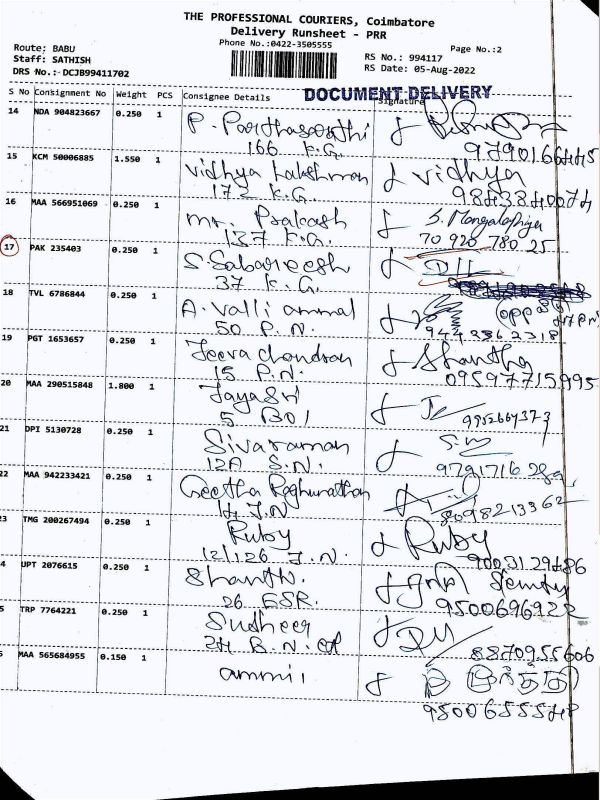 THE PROFESSIONAL COURIERS, Coimbatore
Delivery Runsheet - PRR
Phone No.:0422-3505555
Page No.:2
Route; BABU
Staff: SATHISH
DRS No.: DCJB99411702
RS No.: 994117
RS Date: 05-Aug-2022
DOCUMENT DELIVERY
S No Consignment No Weight PCS Consignee Details Signature
14 NDA 904823667 0.250 1 P. Parthasarathi
166 K.G. 9790166445
15 KCM 50006885 1.550 1 Vidhya Lakshman Vidhya
172 K.G. 9843840074
16 MAA 566951069 0.250 1 Mr. Prakash S. Mangalapriya
137 K.G. 70 920 780 25
17 PAK 235403 0.250 1 S. Sabareesh
37 K.G.
18 TVL 6786844 0.250 1 A. Valli ammal
50 P.N. 9443862318
19 PGT 1653657 0.250 1 Jeeva chandran Shantha
15 P.N. 09597715995
20 MAA 290515848 1.800 1 Jayasri
5 B01 9952667373
21 DPI 5130728 0.250 1 Sivaraman
12A S.N. 979171628
22 MAA 942233421 0.250 1 Geetha Raghunathan
14 J.N 8098213362
3 TMG 200267494 0.250 1 Ruby Ruby
12/126 J.N. 9003129486
4 UPT 2076615 0.250 1 Shanth.
26 ESR. 9500696922
5 TRP 7764221 0.250 1 Sudheer
24 B.N. 8870955606
6 MAA 565684955 0.150 1 ammi
9500655548